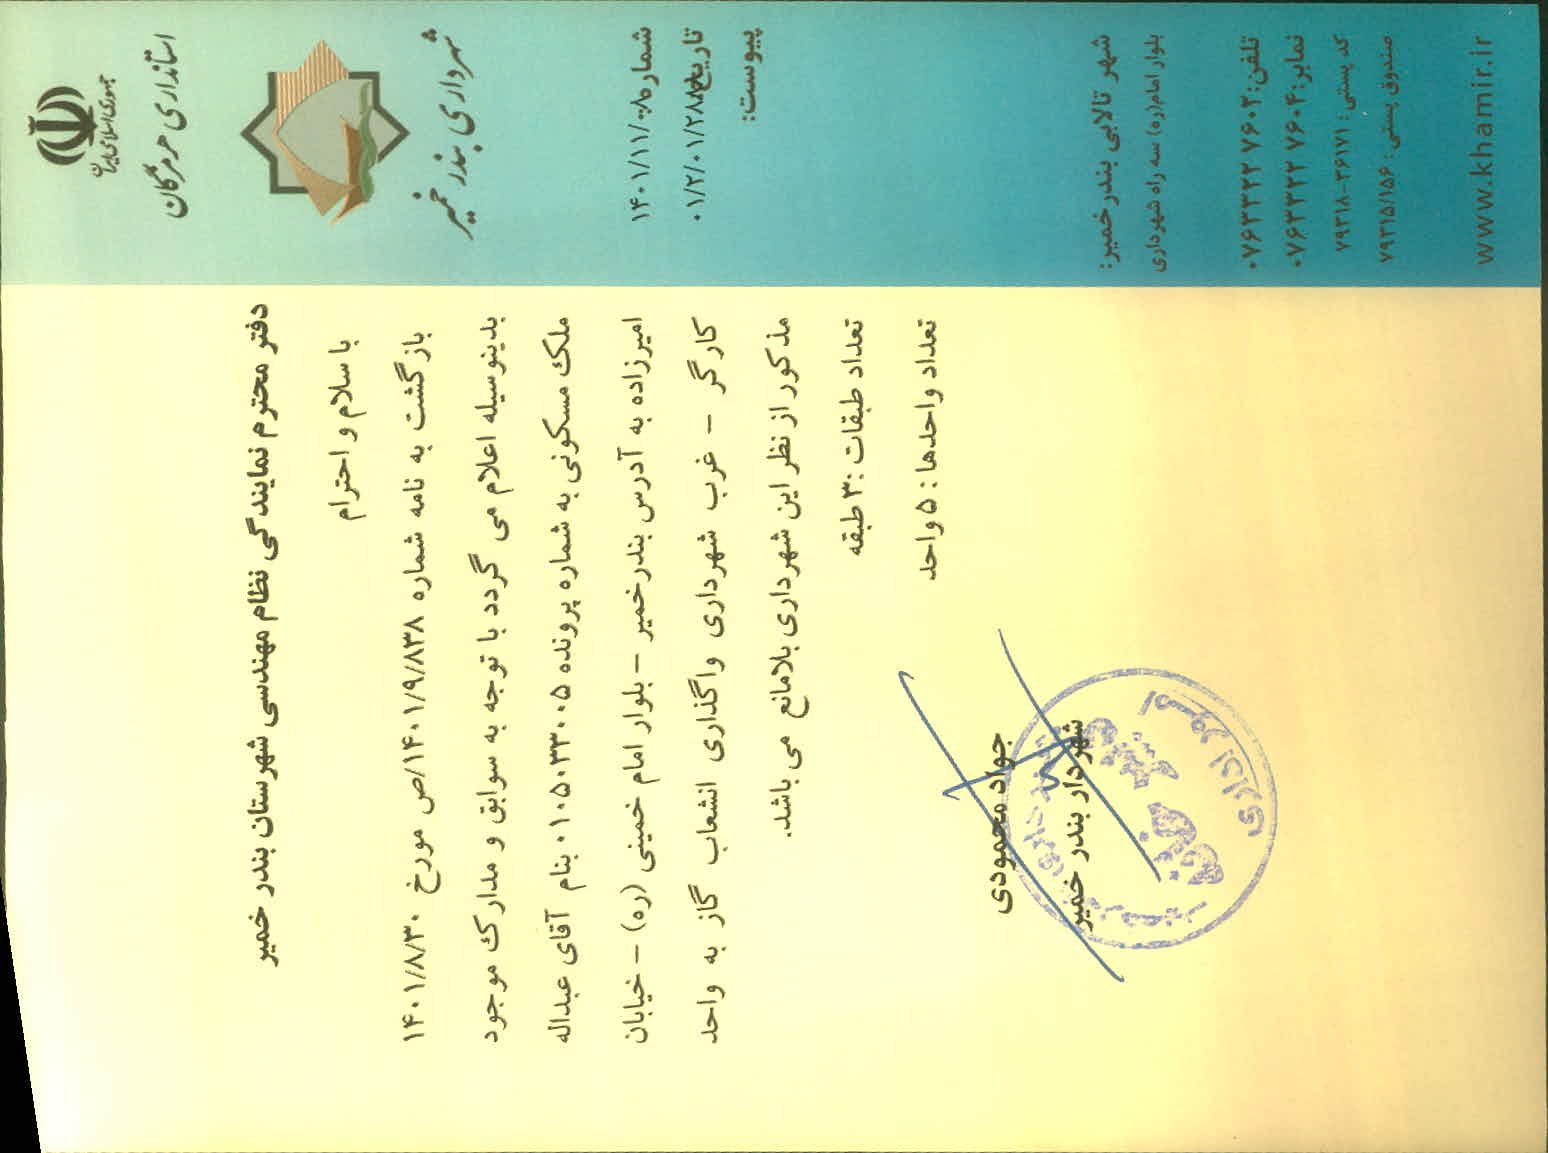 جمهوری اسلامی ایران
استانداری هرمزگان
شهرداری بندر خمیر
شماره:
۱۴۰۱/۱۱/۰۸
تاریخ:
۰۱/۲/۰۱/۲۸۸۵
پیوست:
دفتر محترم نمایندگی نظام مهندسی شهرستان بندر خمیر
با سلام و احترام
بازگشت به نامه شماره ۱۴۰۱/۹/۸۳۸/ص مورخ ۱۴۰۱/۸/۳۰
بدینوسیله اعلام می گردد با توجه به سوابق و مدارک موجود
ملک مسکونی به شماره پرونده ۰۱۰۵۰۳۳۰۰۵ بنام آقای عبداله
امیرزاده به آدرس بندرخمیر – بلوار امام خمینی (ره) – خیابان
کارگر – غرب شهرداری واگذاری انشعاب گاز به واحد
مذکور از نظر این شهرداری بلامانع می باشد.
تعداد طبقات :۳ طبقه
تعداد واحدها : ۵ واحد
جواد محمودی
شهردار بندر خمیر
امور اداری
شهر تالابی بندر خمیر:
بلوار امام(ره) سه راه شهرداری
تلفن: ۰۷۶۳۳۲۲۷۶۰۲
نمابر: ۰۷۶۳۳۲۲۷۶۰۴
کد پستی: ۷۹۳۱۸-۳۶۱۷۱
صندوق پستی: ۷۹۳۱۵/۱۵۶
www.khamir.ir